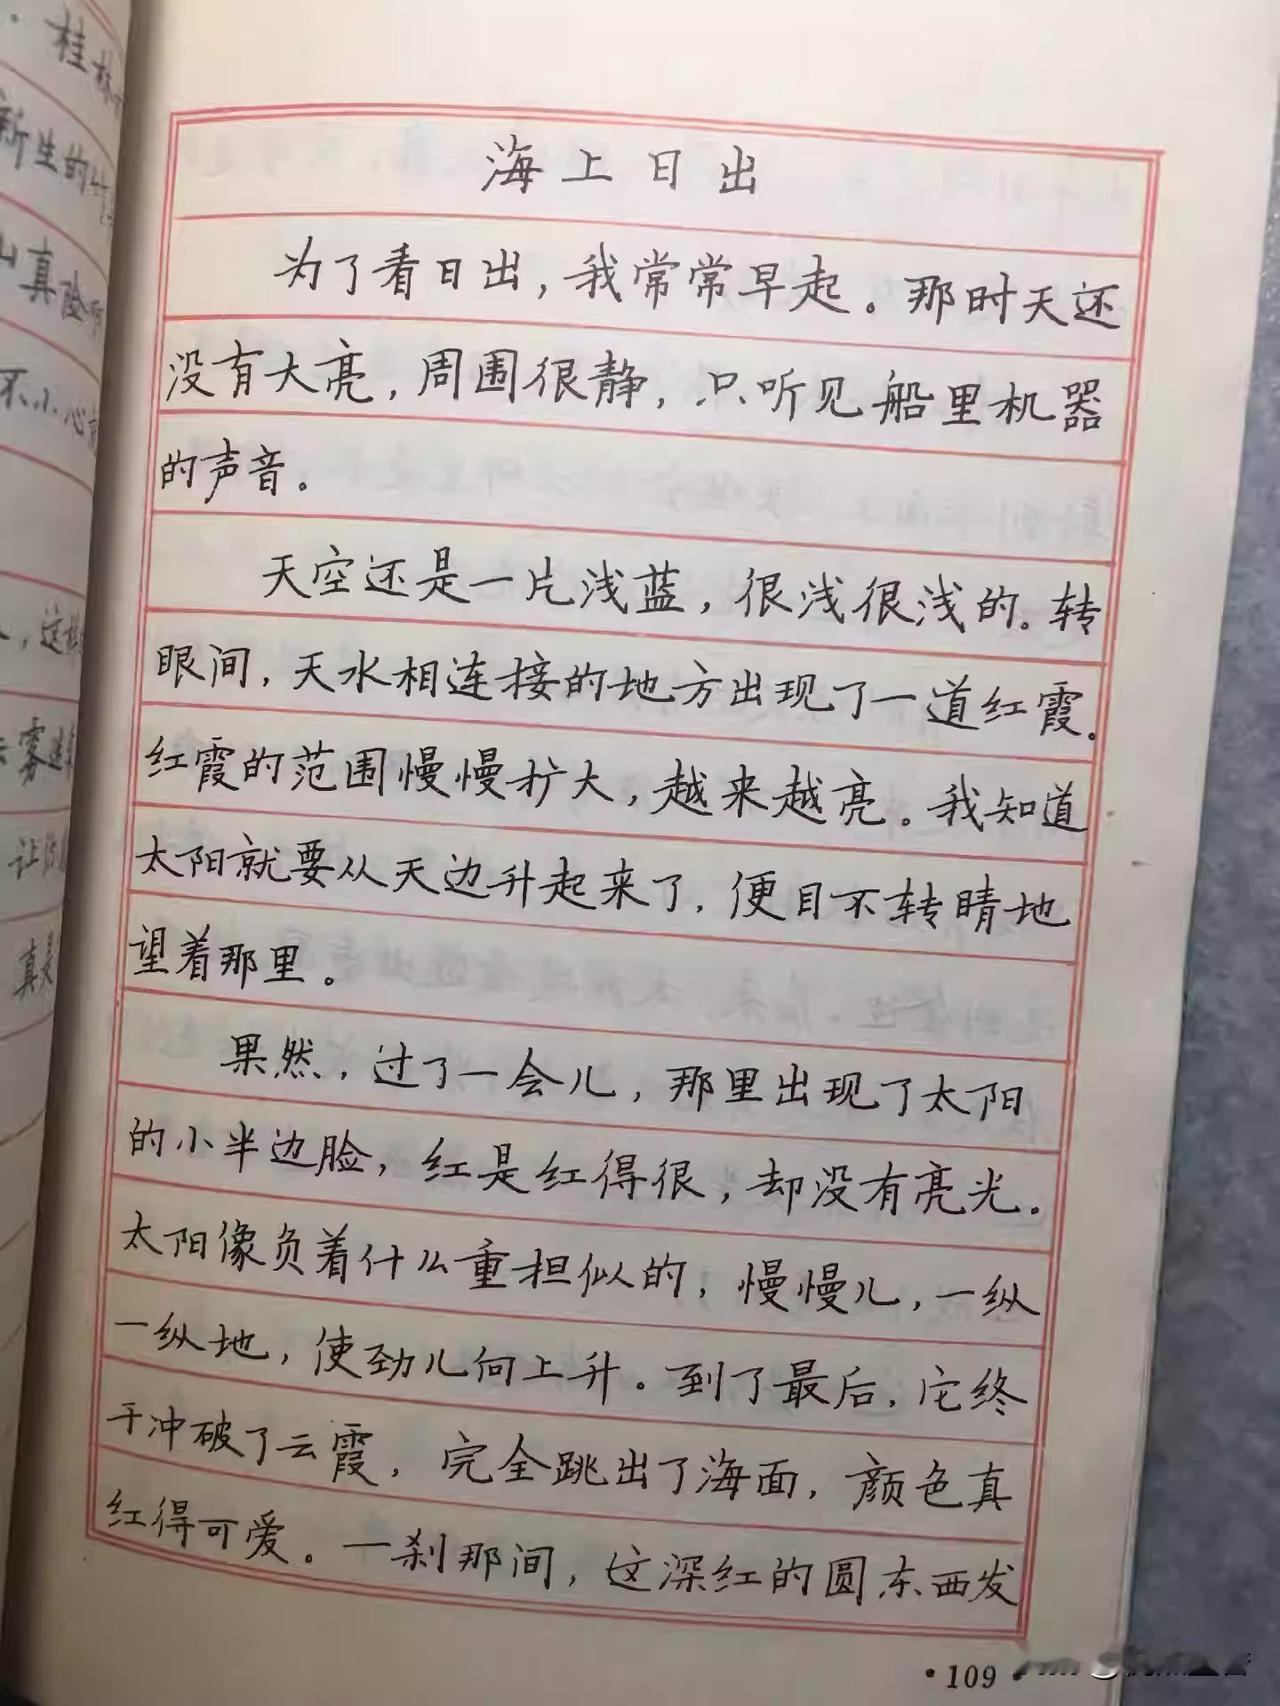 桂林
新生的
山真险啊
不小心
，这样
云雾
让你
真是
海上日出
为了看日出，我常常早起。那时天还
没有大亮，周围很静，只听见船里机器
的声音。
天空还是一片浅蓝，很浅很浅的。转
眼间，天水相连接的地方出现了一道红霞。
红霞的范围慢慢扩大，越来越亮。我知道
太阳就要从天边升起来了，便目不转睛地
望着那里。
果然，过了一会儿，那里出现了太阳
的小半边脸，红是红得很，却没有亮光。
太阳像负着什么重担似的，慢慢儿，一纵
一纵地，使劲儿向上升。到了最后，它终
于冲破了云霞，完全跳出了海面，颜色真
红得可爱。一刹那间，这深红的圆东西发
·109·